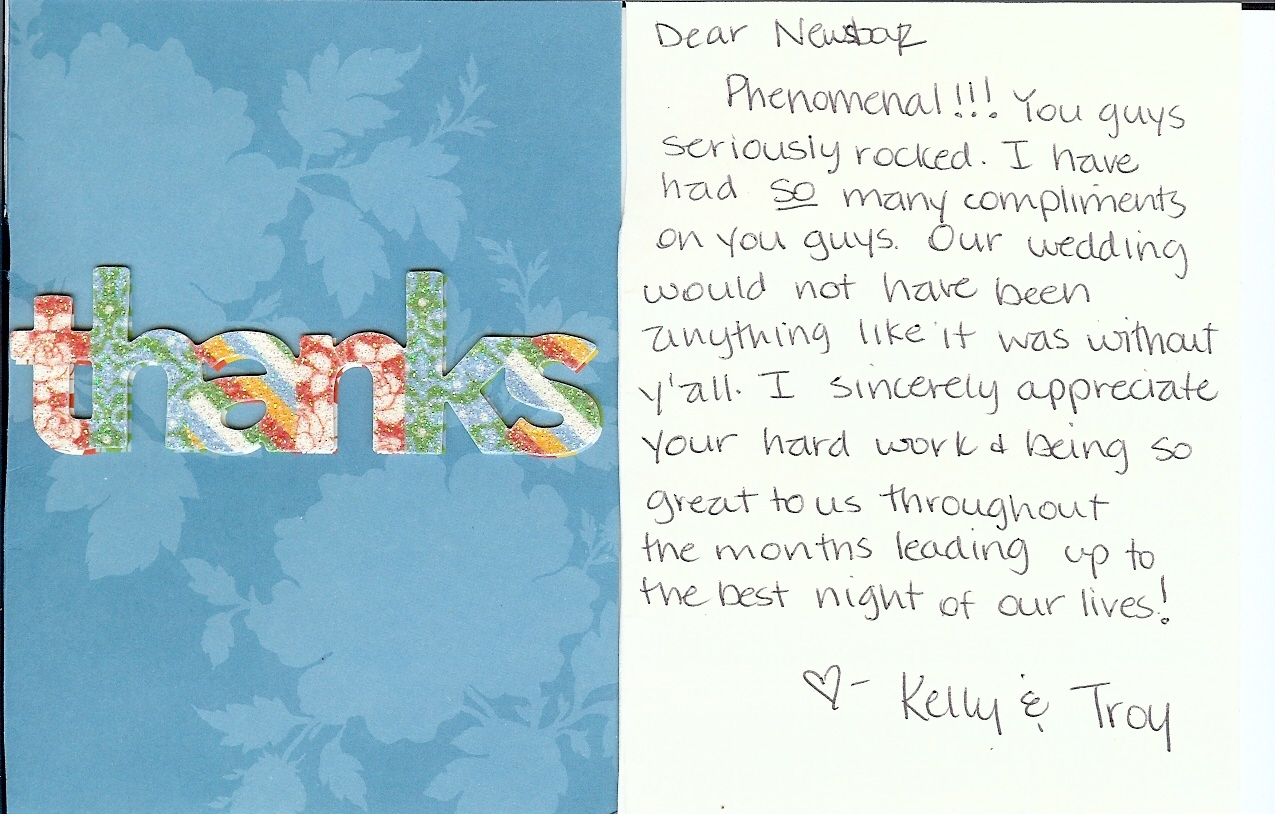 thanks
Dear Newsbaz
Phenomenal!!! You guys
seriously rocked. I have
had so many compliments
on you guys. Our wedding
would not have been
anything like it was without
y'all. I sincerely appreciate
your hard work & being so
great to us throughout
the months leading up to
the best night of our lives!
♡- Kelly & Troy